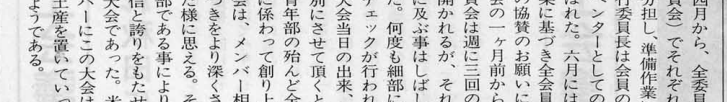 四月から、全委員
員会）でそれぞれ
分担し、準備作業
行委員長は会員の
メンターとしての
ばれた。六月には
案に基づき全会員
の協賛のお願いに
会の一ヶ月前から
員会は週に三回の
開かれるが、それ
に及ぶ事はしばし
た。何度も細部に
ェックが行われ
大会当日の出来、
別にさせて頂くと
青年部の殆んど全
に係わって創り上
会は、メンバー相
つきをより深くさ
た様に思える。そ
部である事により
信と誇りをもたせ
大会であった。米
バーにこの大会は
土産を置いていっ
ようである。